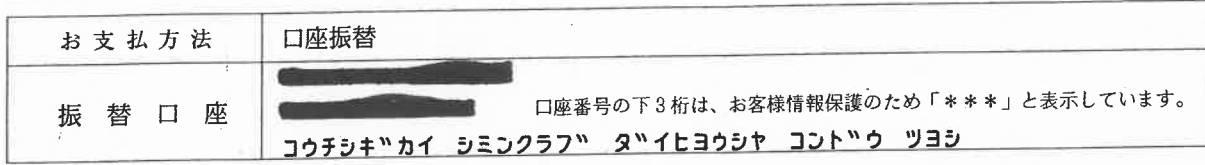 お支払方法 口座振替
振替口座
口座番号の下3桁は、お客様情報保護のため「＊＊＊」と表示しています。
コウチシギカイ シミンクラブ ダイヒヨウシヤ コンドウ ツヨシ